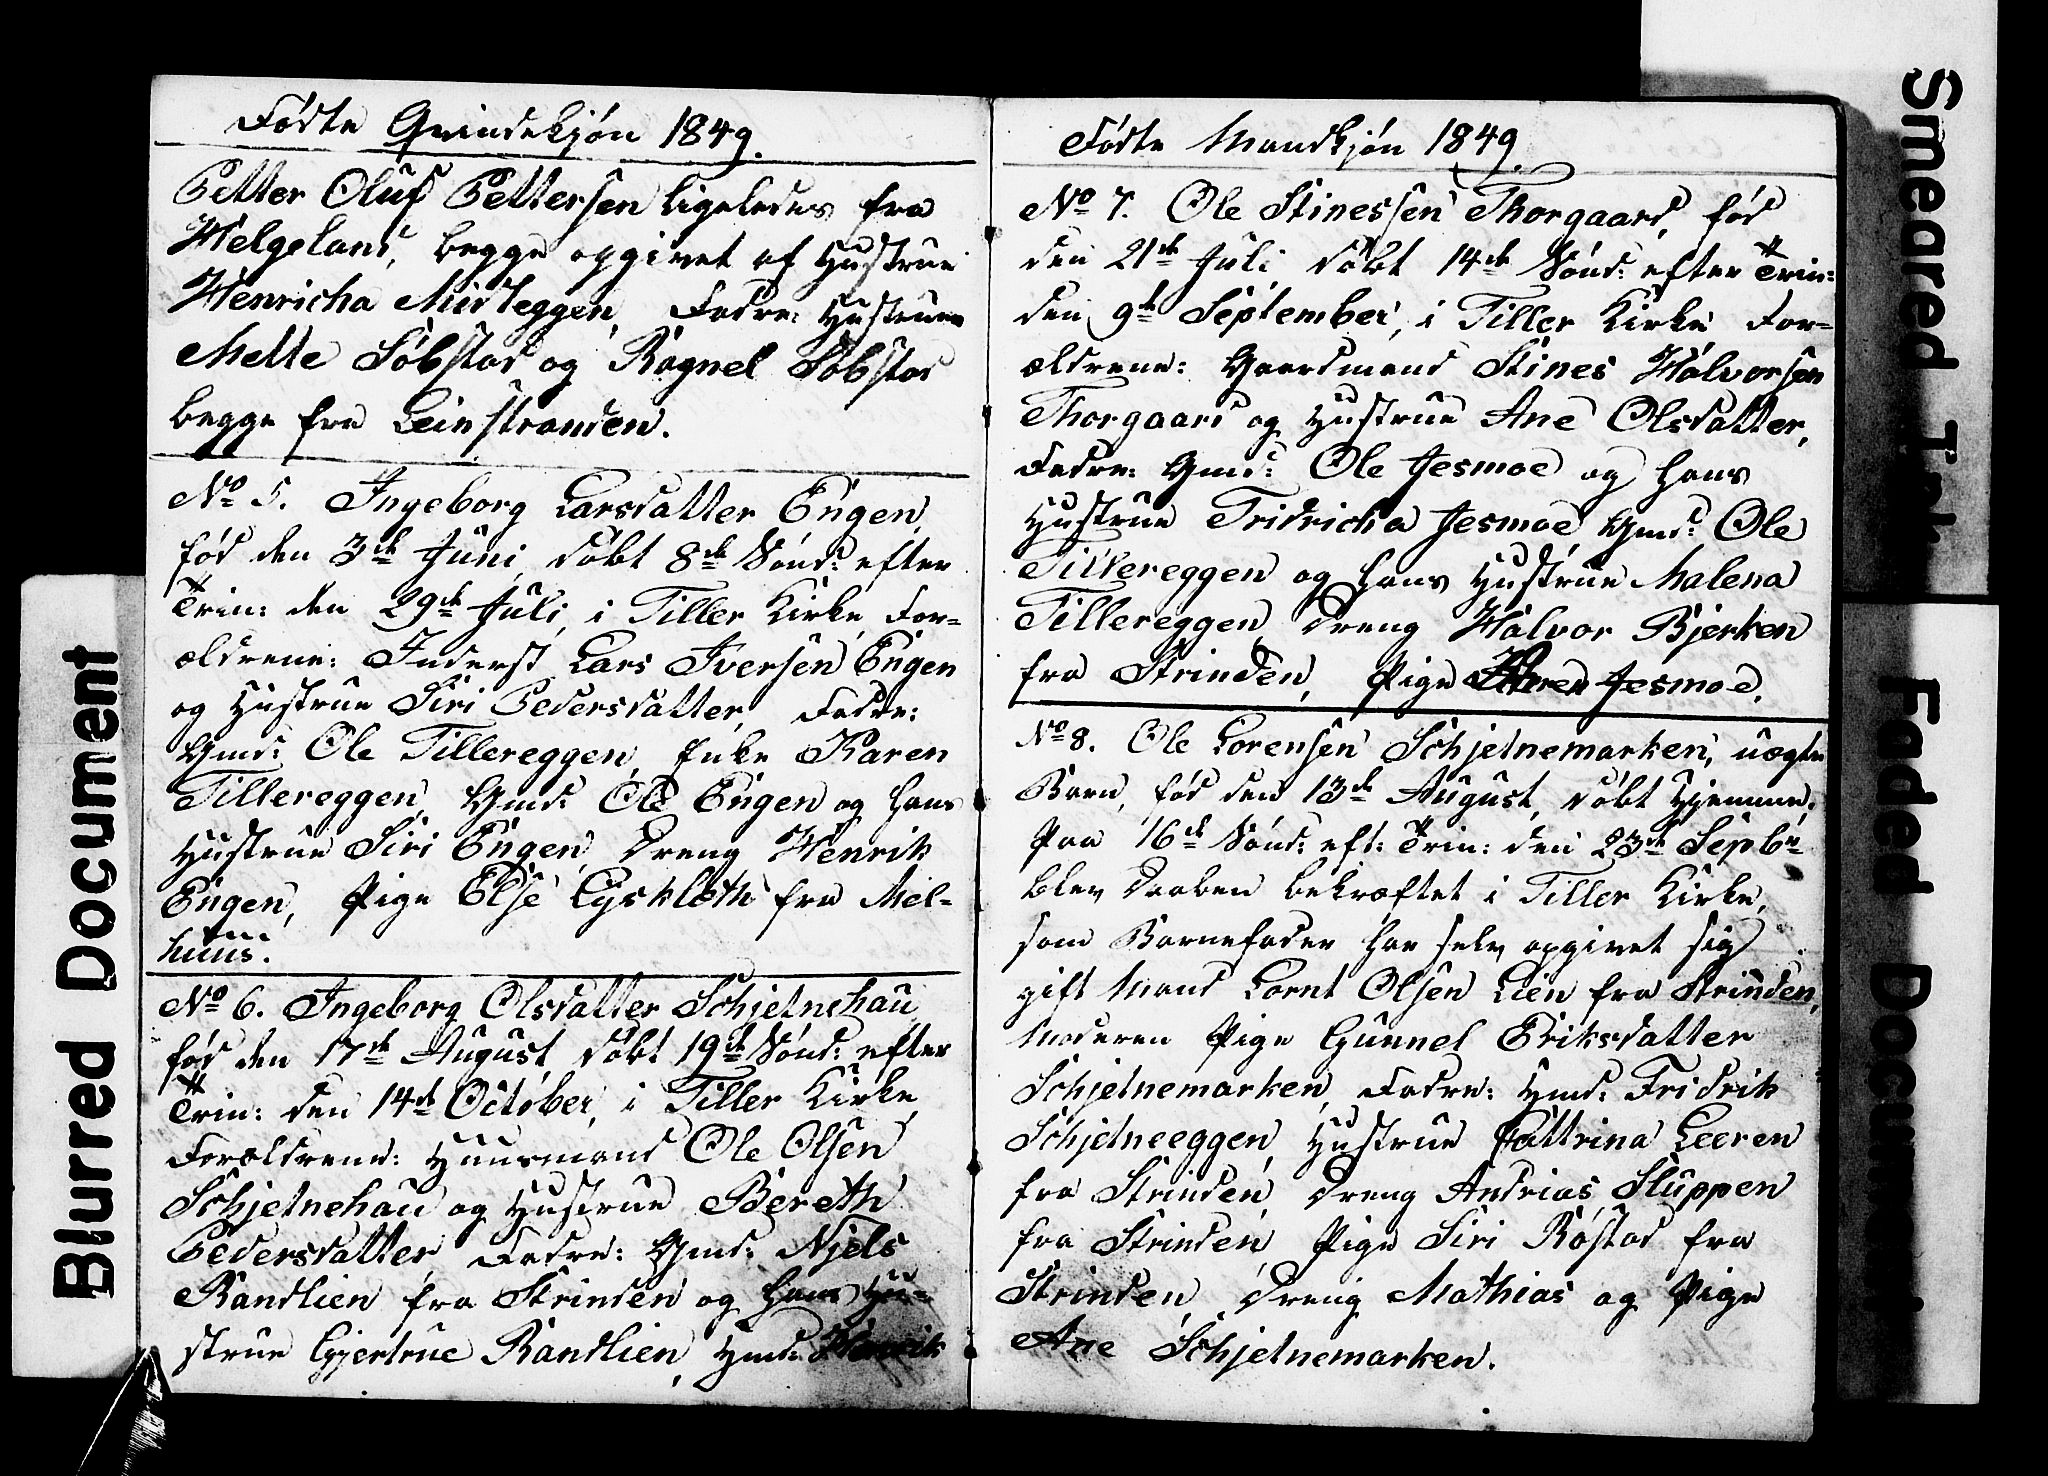 Fødte Qvindekjøn 1849.
Petter Oluf Pettersen ligeledes fra
Helgeland, begge opgivet af Hustrue
Henricha Midteggen, Fadre: Hustruen
Mette Søbstad og Ragnel Søbstad
begge fra Leinstranden.
No 5. Ingeborg Larsdatter Engen,
fød den 3de Juni, døbt 8de Sønd: efter
Trin: den 29de Juli, i Tiller Kirke, For-
ældrene: Inderst Lars Iversen Engen
og Hustrue Siri Pedersdatter, Fadre:
Gmd: Ole Tillereggen, Enke Karen
Tillereggen, Gmd: Ole Engen og hans
Hustrue Siri Engen, Dreng Henrik
Engen, Pige Else Lysklæth fra Mel-
huus.
No 6. Ingeborg Olsdatter Schjetnehau,
fød den 17de August, døbt 19de Sønd: efter
Trin: den 14de October, i Tiller Kirke,
Forældrene: Huusmand Ole Olsen
Schjetnehau og Hustrue Bereth
Pedersdatter, Fadre: Gmd: Njels
Randlien fra Strinden og hans Hu-
strue Gjertrue Randlien, Hmd: Henrik
Fødte Mandkjøn 1849.
No 7. Ole Stinessen Thorgaard, fød
den 21de Juli, døbt 14de Sønd: efter Trin:
den 9de September, i Tiller Kirke For-
ældrene: Gaardmand Stines Halvorsen
Thorgaard og Hustrue Ane Olsdatter,
Fadre: Gmd: Ole Jesmoe og hans
Hustrue Fridricha Jesmoe, Gmd: Ole
Tillereggen og hans Hustrue Malena
Tillereggen, Dreng Halvor Bjerken
fra Strinden, Pige Jesmoe.
No 8. Ole Lorensen Schjetnemarken, uægte
Barn, fød den 13de August, døbt Hjemme,
Paa 16de Sønd: eft: Trin: den 23de Sepbr
blev Daaben bekræftet i Tiller Kirke,
som Barnefader har selv opgivet sig
gift Mand Lornt Olsen Lien fra Strinden,
Moderen Pige Gunnel Eriksdatter
Schjetnemarken, Fadre: Hmd: Fridrik
Schjetneeggen, Hustrue Cattrina Leeren
fra Strinden, Dreng Andrias Sluppen
fra Strinden, Pige Siri Røstad fra
Strinden, Dreng Mathias og Pige
Ane Schjetnemarken.
Blurred Document
Smeared
Faded Document